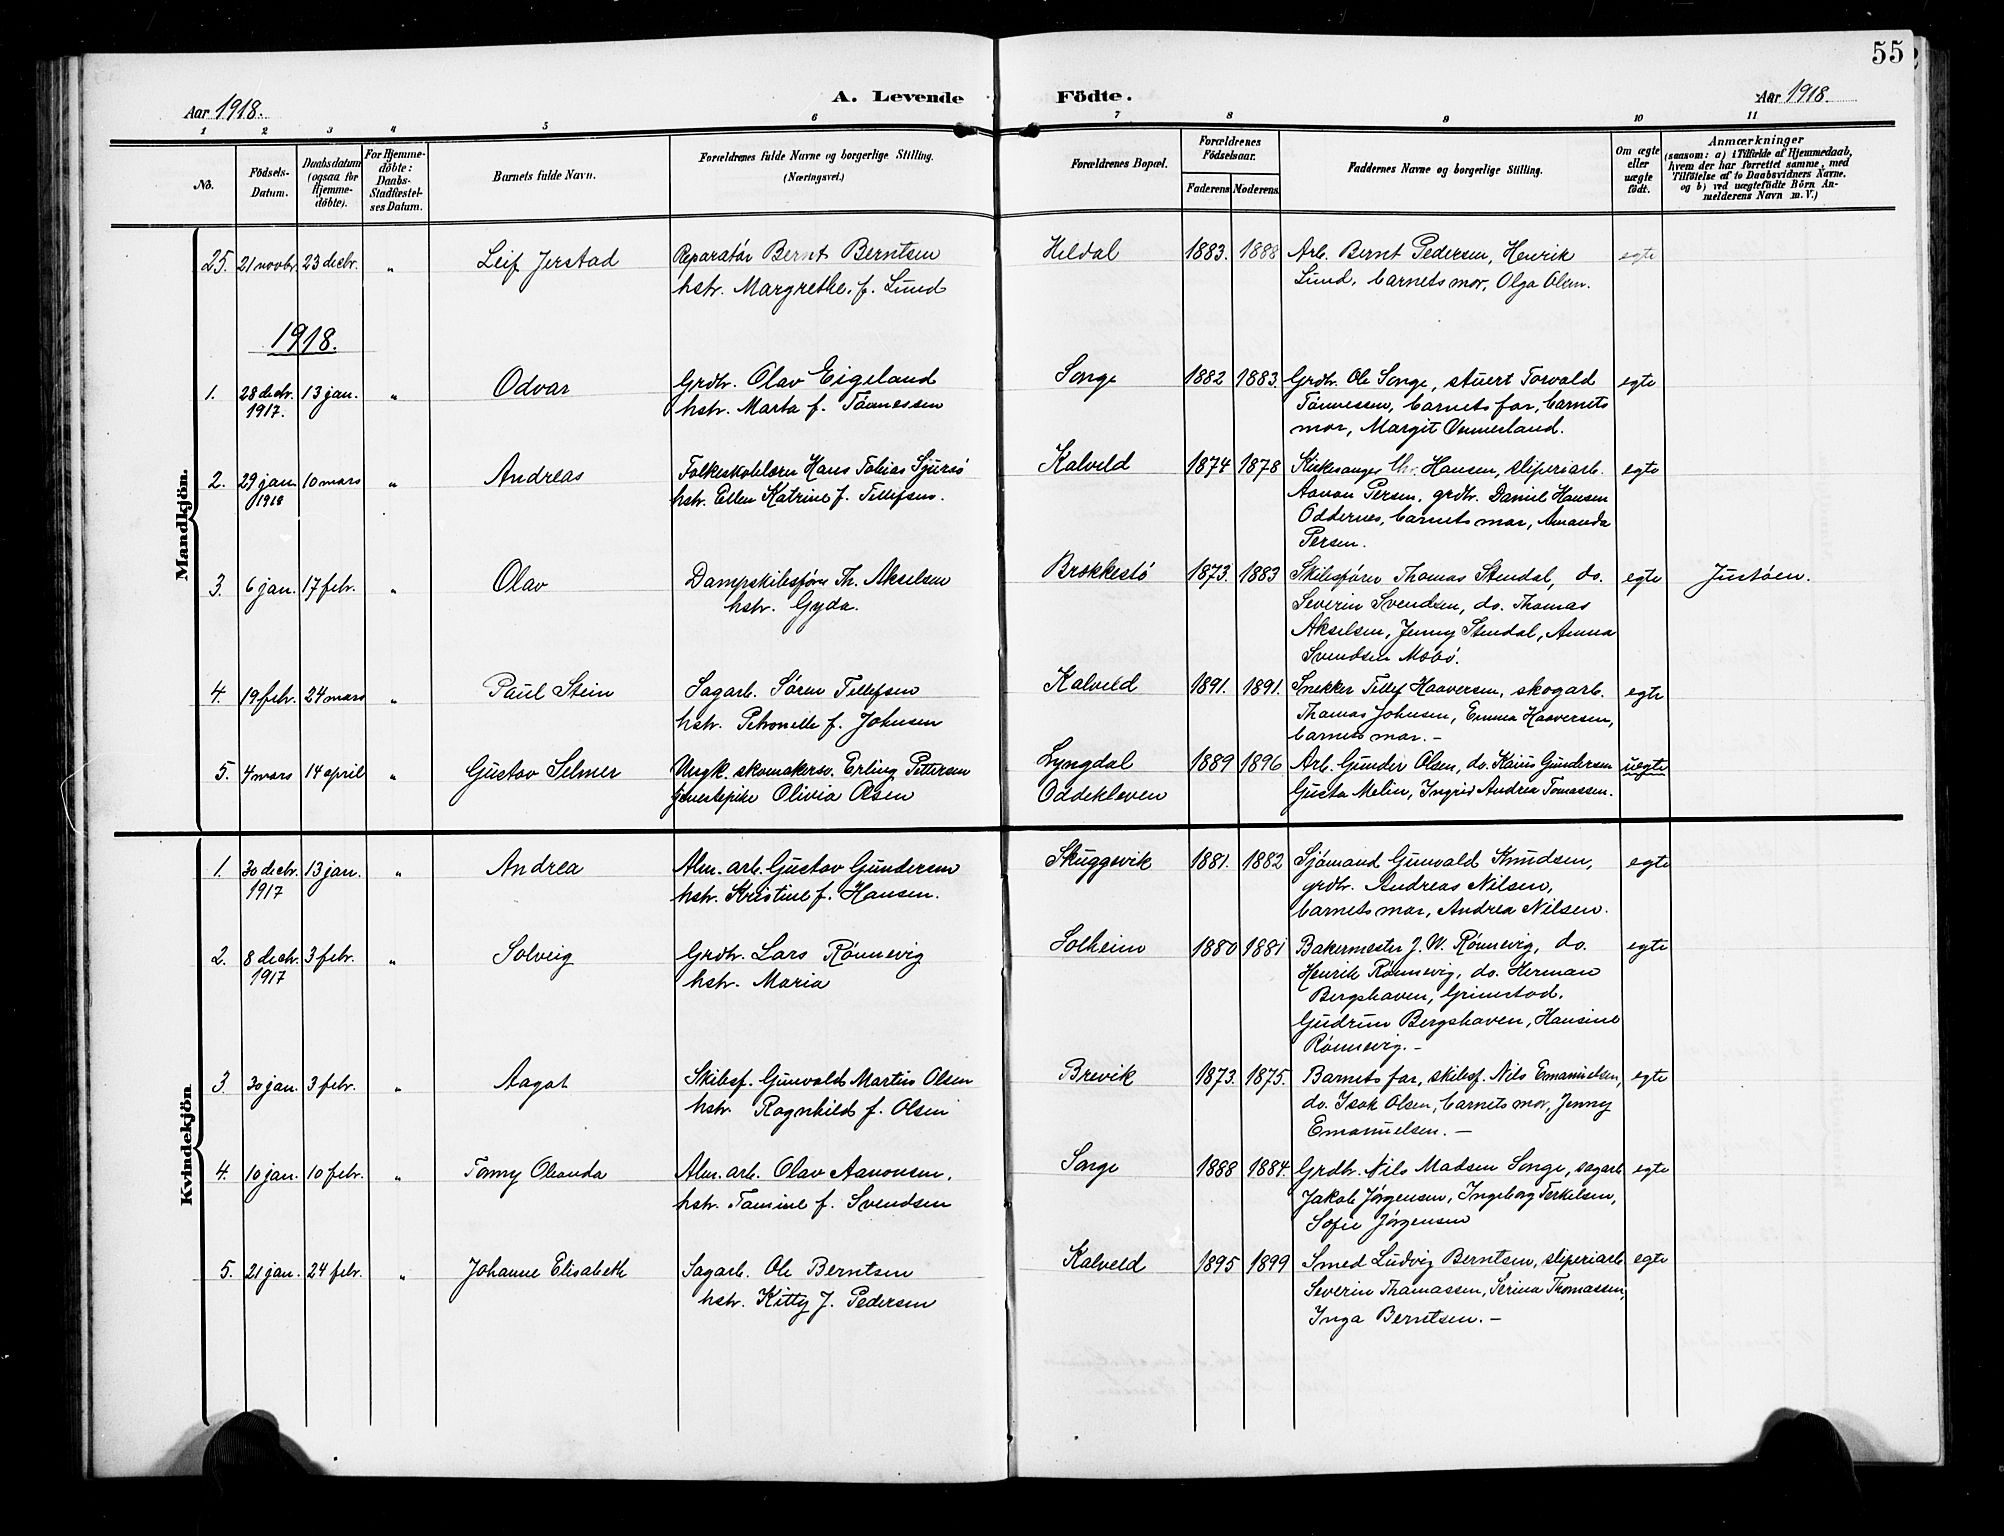 55
Aar 1918.
A. Levende Födte.
Aar 1918.
1 2 3 4 5 6 7 8 9 10 11
No.
Födsels-Datum.
Daabsdatum (ogsaa for Hjemme-döbte).
For Hjemme-döbte: Daabs-Stadfæstel-ses Datum.
Barnets fulde Navn.
Forældrenes fulde Navne og borgerlige Stilling. (Næringsvei.)
Forældrenes Bopæl.
Forældrenes Födselsaar.
Faderens. Moderens.
Faddernes Navne og borgerlige Stilling.
Om ægte eller uægte födt.
Anmærkninger
(saasom: a) i Tilfælde af Hjemmedaab,
hvem der har forrettet samme, med
Tilföielse af to Daabsvidners Navne,
og b) ved uægtefödte Börn An-
melderens Navn m. V.)
Mandkjön.
25. 21 novbr. 23 decbr. " Leif Jerstad Reparatör Bernt Berntsen Heldal 1883. 1888 Arb. Bernt Pedersen, Henrik egte
hstr. Margrethe f. Lund Lund, barnets mor, Olga Olsen.
1918.
1. 28 decbr. 13 jan. " Odvar Grdbr. Olav Eigeland Songe 1882 1883. Grdbr. Ole Songe, stuert Torvald egte
1917. hstr. Marta f. Tönnessen Tönnessen, barnets far, barnets
mor, Margit Vennerland.
2. 29 jan. 10 mars " Andreas Folkeskolelærer Hans Tobias Sjursö Kalveld 1874 1878 Kirkesanger Chr. Hansen, sliperiarb. egte
1918 hstr. Ellen Katrine f. Tellefsen. Aanon Persen, grdbr. Daniel Hansen
Oddernes, barnets mor, Amanda
Persen.
3. 6 jan. 17 febr. " Olav Dampskibsförer Th. Akselsen Brekkestö 1873. 1883 Skibsförer Thomas Stendal, do. egte Justöen.
hstr. Gyda. Severin Svendsen, do. Thomas
Akselsen, Jenny Stendal, Anna
Svendsen Mobö.
4. 19 febr. 24 mars " Paul Stein Sagarb. Sören Tellefsen Kalveld 1891. 1891. Snekker Tellef Haaversen, skogarb. egte
hstr. Petronelle f. Johnsen Thomas Johnsen, Emma Haaversen,
barnets mor. –
5. 4 mars 14 april " Gustav Selmer Ungk. skomakersv. Erling Pettersen Lyngdal 1889 1896 Arb. Gunder Olsen, do. Kavis Gundersen uegte
tjenestepike Olivia Olsen Oddekleven Gusta Melin, Ingrid Andrea Tomassen.
Kvindekjön
1. 30 decbr. 13 jan. " Andrea Alm. arb. Gustav Gundersen Skuggevik 1881. 1882 Sjömand Gunvald Knudsen, egte
1917 hstr. Kristine f. Hansen. grdbr. Andreas Nilsen,
barnets mor, Andrea Nilsen.
2. 8 decbr. 3 febr. " Solveig Grdbr. Lars Rönnevig Solheim 1880 1881 Bakermester J. W. Rönnevig, do. egte
1917 hstr. Maria Henrik Rönnevig, do. Herman
Bergshaven, Grimstad.
Gudrun Bergshaven, Hansine
Rönnevig. –
3 30 jan. 3 febr. " Aagot Skibsf. Gunvald Martin Olsen Brevik 1873. 1875. Barnets far, skibsf. Nils Emanuelsen, egte
hstr. Ragnhild f. Olsen do. Isak Olsen, barnets mor, Jenny
Emanuelsen. –
4. 10 jan. 10 febr. " Tonny Oleanda Alm. arb. Olav Aanonsen, Songe 1888 1884. Grdbr. Nils Madsen Songe, sagarb. egte
hstr. Tomine f. Svendsen Jakob Jörgensen, Ingeborg Terkelsen,
Sofie Jörgensen
5. 21 jan. 24 febr. " Johanne Elisabeth Sagarb. Ole Berntsen Kalveld 1895 1899 Smed Ludvig Berntsen, sliperiarb. egte
hstr. Kitty f. Pedersen Severin Thomassen, Serina Thomassen,
Inga Berntsen. –